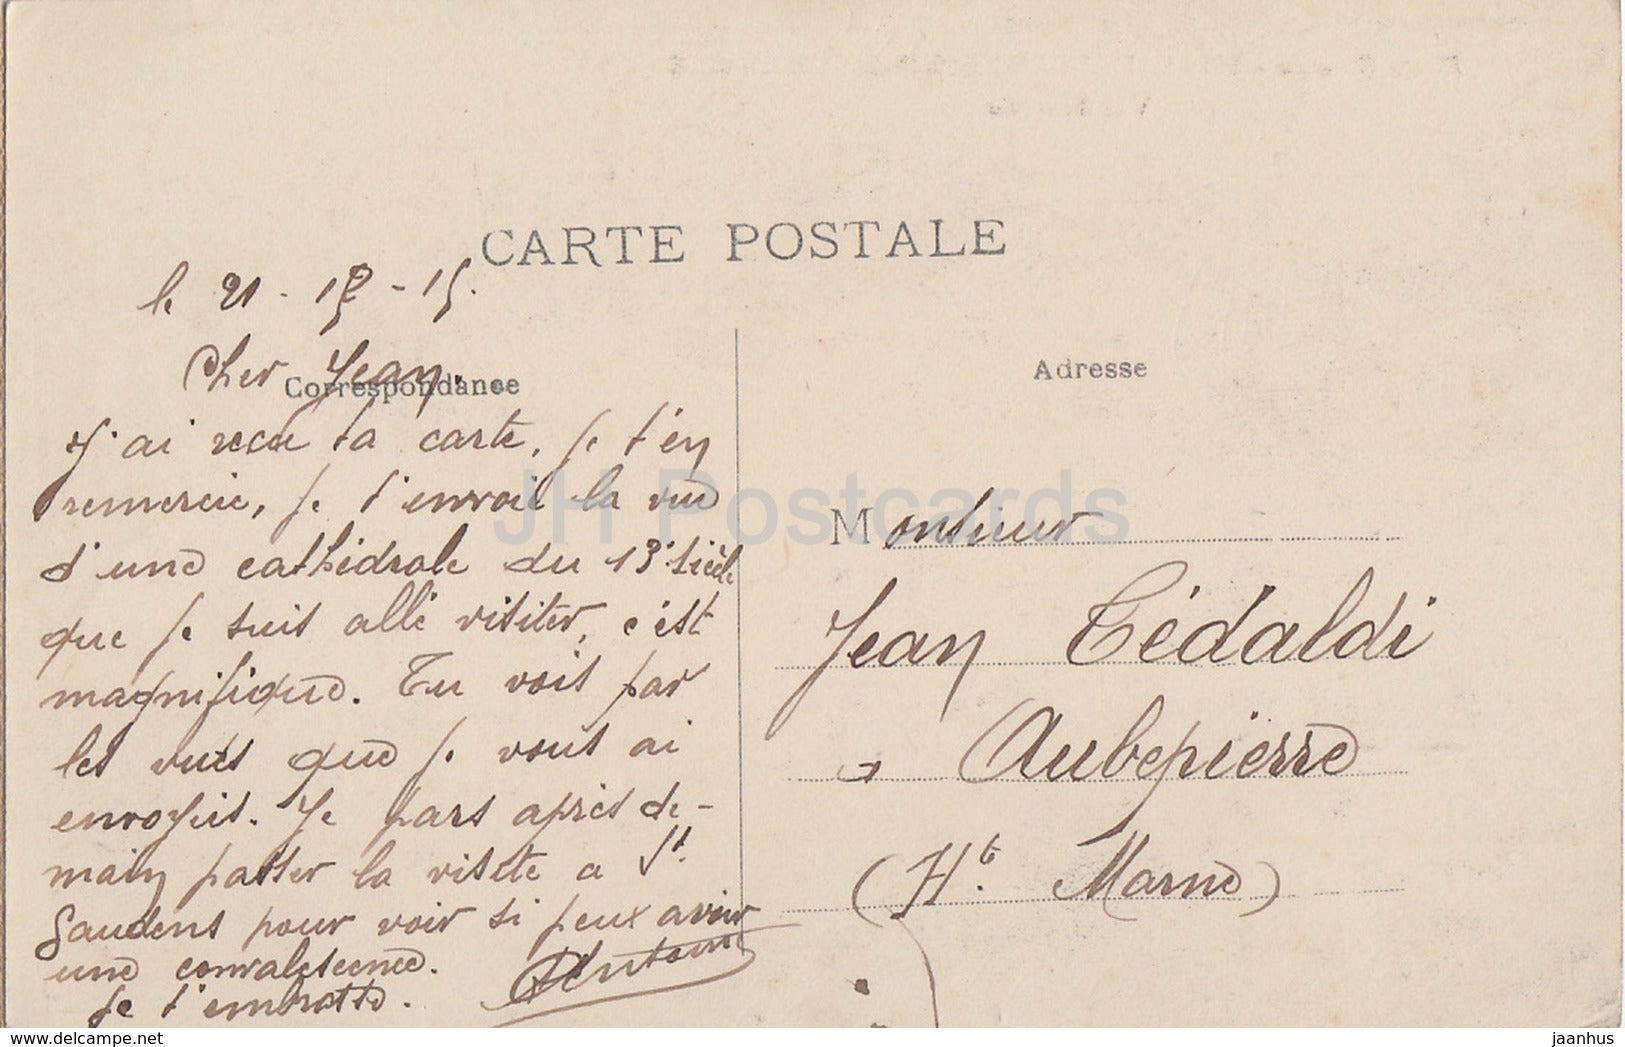 CARTE POSTALE
le 21 - 12 - 15.
Correspondance
Cher Jean.
J'ai recu ta carte, je t'en
remercie, je t'envoie la vue
d'une cathédrale du 13e siècle
que je suis allé visiter, c'est
magnifique. Tu vois par
les vues que je vous ai
envoyeis. Je pars après de-
main passer la visite a St.
Gaudens pour voir si peux avoir
une convalescence.
Je t'embrasse. Antoine
Adresse
Monsieur
Jean Tédaldi
a Aubepierre
(Hte. Marne)
JH Postcards
www.delcampe.net
jaanhus